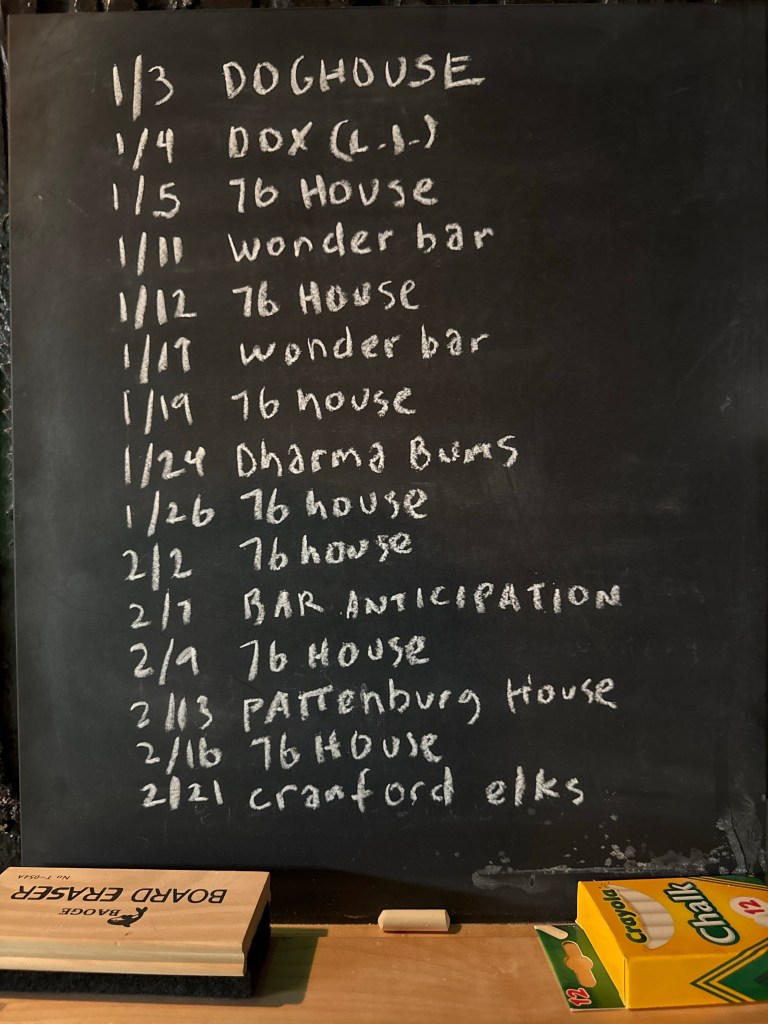 1/3 DOGHOUSE
1/4 DOX (L.I.)
1/5 76 HOUSe
1/11 wonder bar
1/12 76 HOUSe
1/17 wonder bar
1/19 76 house
1/24 Dharma Bums
1/26 76 house
2/2 76 house
2/7 BAR ANTICIPATION
2/9 76 HOUSe
2/13 PATTenburg House
2/16 76 HOUSe
2/21 cranford elks
No T-054A
BOARD ERASER
BAOGE
Crayola
Chalk
12
12